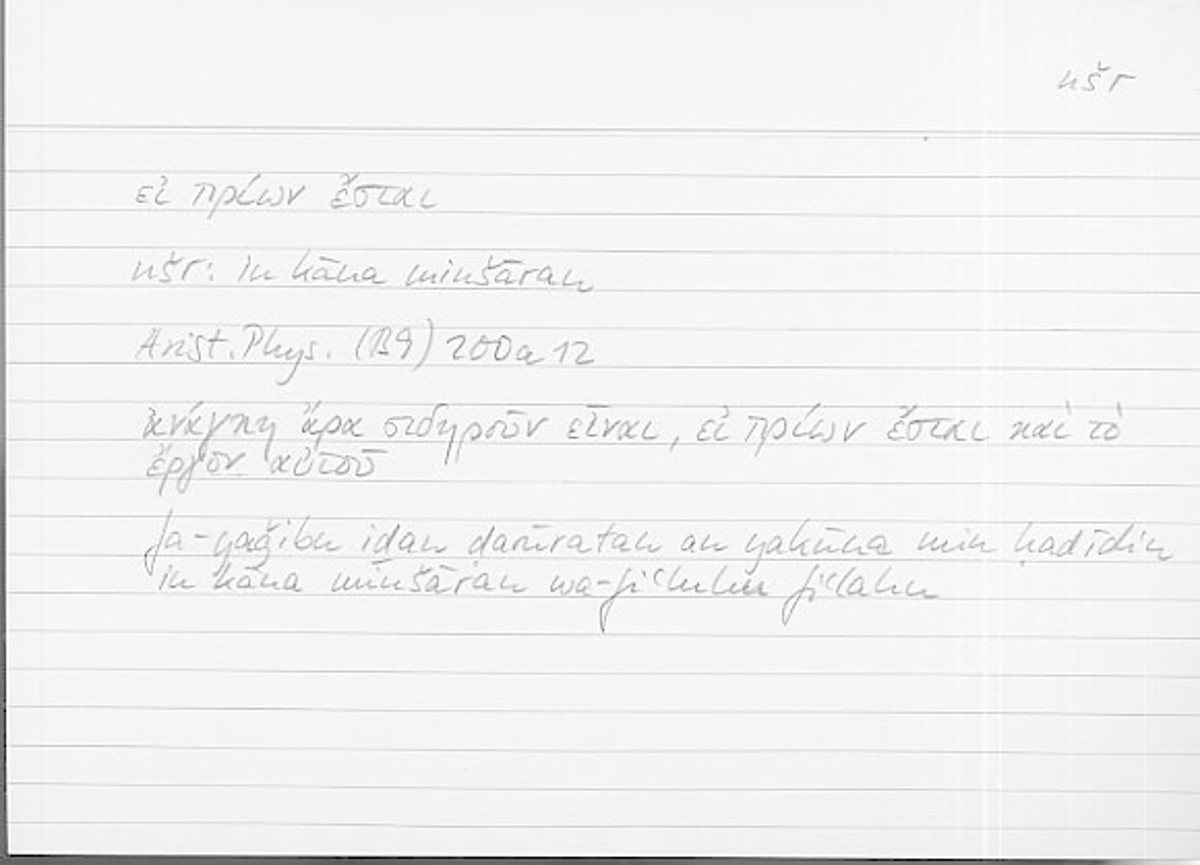 nšr
εἰ πρίων ἔσται
nšr: in kāna minšāran
Arist. Phys. (B9) 200a12
ἀνάγκη ἄρα σιδηροῦν εἶναι, εἰ πρίων ἔσται καὶ τὸ
ἔργον αὐτοῦ
fa-yaǧibu iḏan ḍarūratan an yakūna min ḥadīdin
in kāna minšāran wa-fiʿluhū fiʿlahu